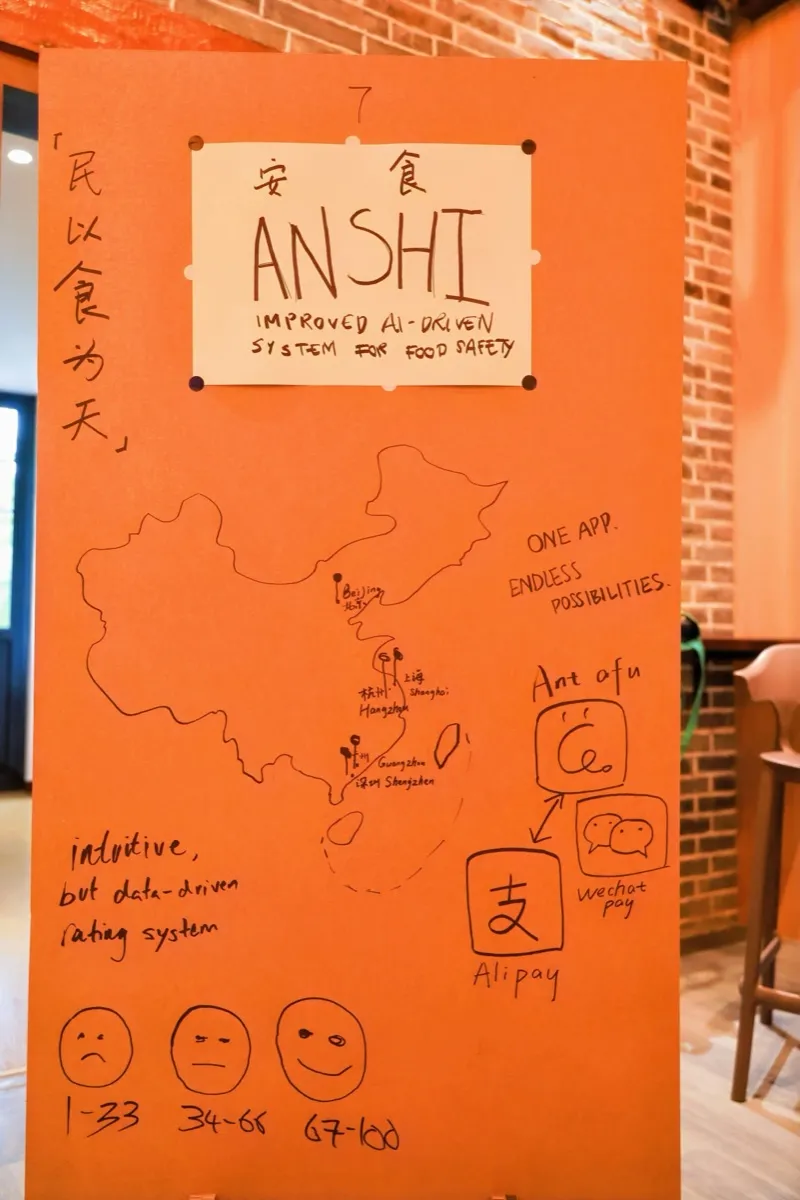 7
「民以食为天」
安 食
ANSHI
IMPROVED AI-DRIVEN
SYSTEM FOR FOOD SAFETY
ONE APP.
ENDLESS
POSSIBILITIES.
Beijing
北京
上海
Shanghai
杭州
Hangzhou
广州 Guangzhou
深圳 Shengzhen
Ant afu
Wechat
pay
支
Alipay
intuitive,
but data-driven
rating system
1-33 34-66 67-100